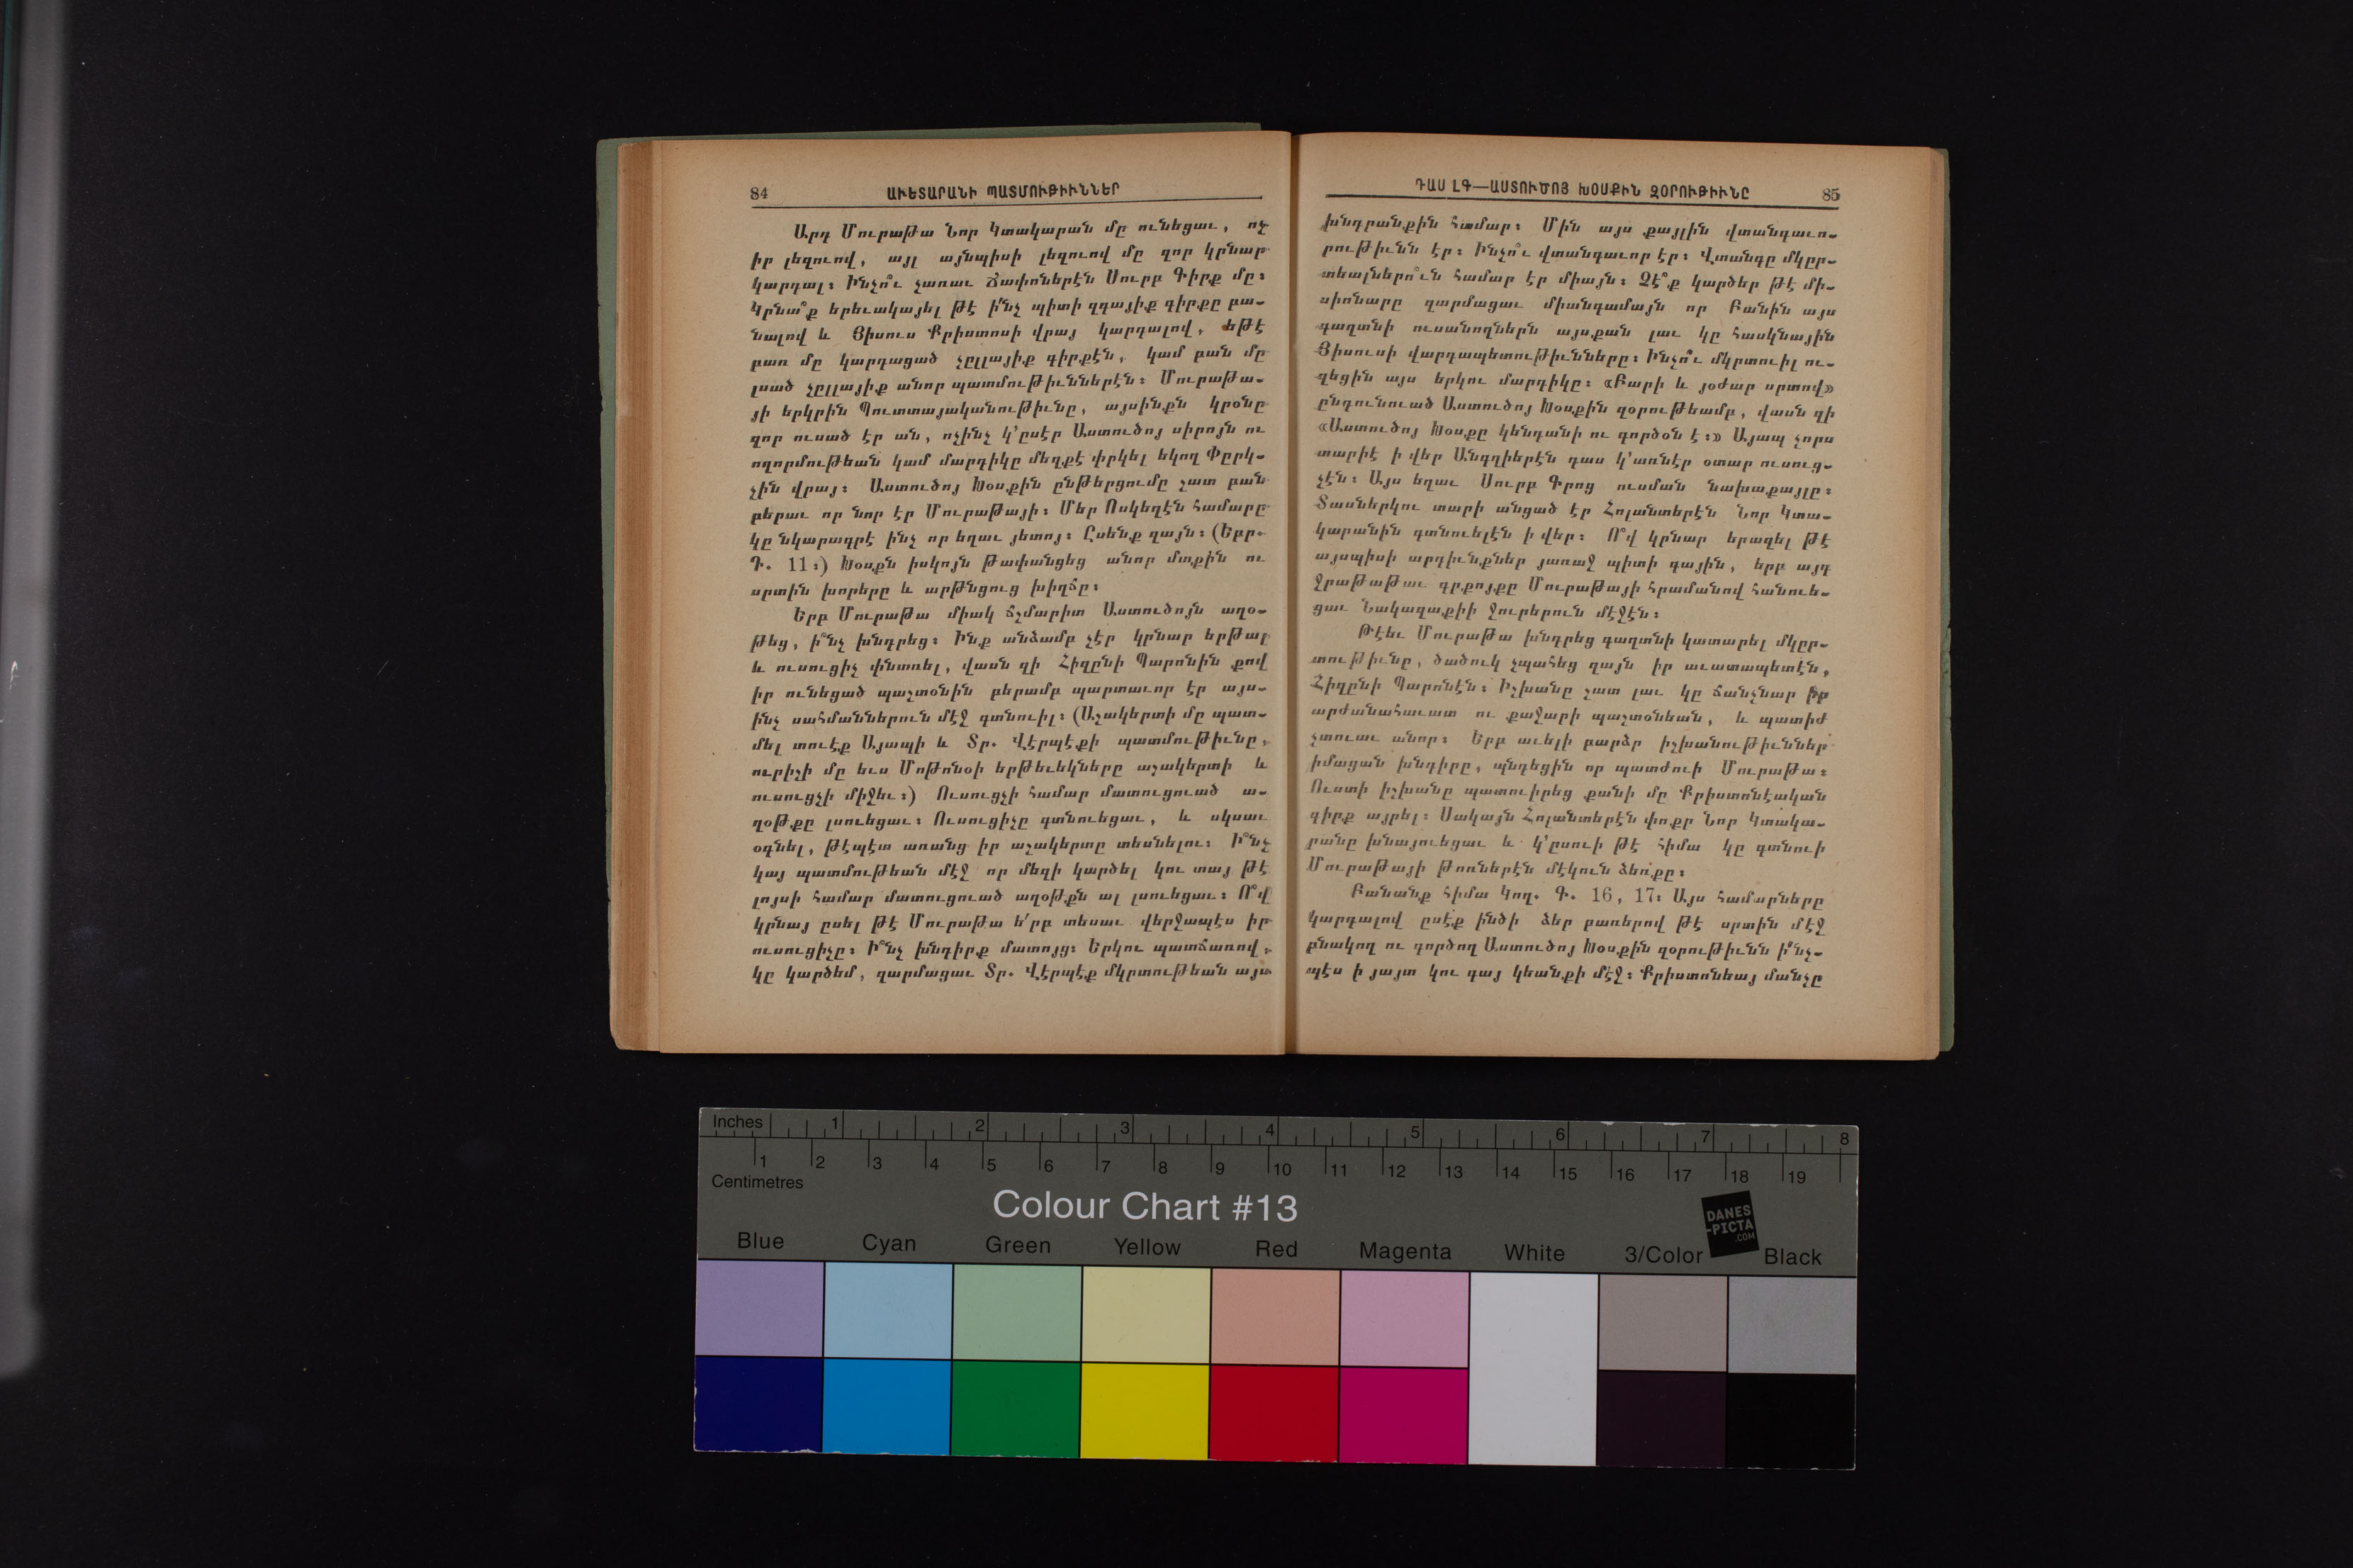 84 ԱՒԵՏԱՐԱՆԻ ՊԱՏՄՈՒԹԻՒՆՆԵՐ
Արդ Մուրաթա Նոր Կտակարան մը ունեցաւ, ոչ
իր լեզուով, այլ այնպիսի լեզուով մը զոր կրնար
կարդալ։ Ինչո՞ւ չառաւ Ճափոներէն Սուրբ Գիրք մը։
Կրնա՞ք երեւակայել թէ ի՛նչ պիտի զգայիք գիրքը բա-
նալով և Յիսուս Քրիստոսի վրայ կարդալով, եթէ
բառ մը կարդացած չըլլայիք գիրքէն, կամ բան մը
լսած չըլլայիք անոր պատմութիւններէն։ Մուրաթա-
յի երկրին Պուտտայականութիւնը, այսինքն կրօնը
զոր ուսած էր ան, ոչինչ կ՚ըսէր Աստուծոյ սիրոյն ու
ողորմութեան կամ մարդիկը մեղքէ փրկել եկող Փըրկ-
չին վրայ։ Աստուծոյ Խօսքին ընթերցումը շատ բան
բերաւ որ նոր էր Մուրաթայի։ Մեր Ոսկեղէն համարը
կը նկարագրէ ինչ որ եղաւ յետոյ։ Ըսենք զայն։ (Եբր.
Դ. 11։) Խօսքն իսկոյն թափանցեց անոր մտքին ու
սրտին խորերը և արթնցուց խիղճը։
Երբ Մուրաթա միակ ճշմարիտ Աստուծոյն աղօ-
թեց, ի՞նչ խնդրեց։ Ինք անձամբ չէր կրնար երթալ
և ուսուցիչ փնտռել, վասն զի Հիզընի Պարոնին քով
իր ունեցած պաշտօնին բերամբ պարտաւոր էր այս-
ինչ սահմաններուն մէջ գտնուիլ։ (Աշակերտի մը պատ-
մել տուէք Այապի և Տր. Վէրպէքի պատմութիւնը,
ուրիշի մը եւս Մոթոնօի երթեւեկները աշակերտի և
ուսուցչի միջեւ։) Ուսուցչի համար մատուցուած ա-
ղօթքը լսուեցաւ։ Ուսուցիչը գտնուեցաւ, և սկսաւ
օգնել, թէպէտ առանց իր աշակերտը տեսնելու։ Ի՞նչ
կայ պատմութեան մէջ որ մեզի կարծել կու տայ թէ
լոյսի համար մատուցուած աղօթքն ալ լսուեցաւ։ Ո՞վ
կրնայ ըսել թէ Մուրաթա ե՛րբ տեսաւ վերջապէս իր
ուսուցիչը։ Ի՞նչ խնդիրք մատոյց։ Երկու պատճառով,
կը կարծեմ, զարմացաւ Տր. Վէրպէք մկրտութեան այս
ԴԱՍ ԼԳ—ԱՍՏՈՒԾՈՅ ԽՕՍՔԻՆ ԶՕՐՈՒԹԻՒՆԸ 85
խնդրանքին համար։ Մին այս քայլին վտանգաւո-
րութիւնն էր։ Ինչո՞ւ վտանգաւոր էր։ Վտանգը մկըր-
տեալներո՞ւն համար էր միայն։ Չէ՞ք կարծեր թէ մի-
սիոնարը զարմացաւ միանգամայն որ Բանին այս
գաղտնի ուսանողներն այսքան լաւ կը հասկնային
Յիսուսի վարդապետութիւնները։ Ինչո՞ւ մկրտուիլ ու-
զեցին այս երկու մարդիկը։ «Բարի և յօժար սրտով»
ընդունուած Աստուծոյ Խօսքին զօրութեամբ, վասն զի
«Աստուծոյ Խօսքը կենդանի ու գործօն է։» Այապ չորս
տարիէ ի վեր Անգղիերէն դաս կ՚առնէր օտար ուսուց-
չէն։ Այս եղաւ Սուրբ Գրոց ուսման նախաքայլը։
Տասներկու տարի անցած էր Հոլանտերէն Նոր Կտա-
կարանին գտնուելէն ի վեր։ Ո՞վ կրնար երազել թէ
այսպիսի արդիւնքներ յառաջ պիտի գային, երբ այդ
ջրաթաթաւ գրքոյքը Մուրաթայի հրամանով հանուե-
ցաւ Նակազաքիի ջուրերուն մէջէն։
Թէեւ Մուրաթա խնդրեց գաղտնի կատարել մկըր-
տութիւնը, ծածուկ չպահեց զայն իր աւատապետէն,
Հիզընի Պարոնէն։ Իշխանը շատ լաւ կը ճանչնար իր
արժանահաւատ ու քաջարի պաշտօնեան, և պատիժ
չտուաւ անոր։ Երբ աւելի բարձր իշխանութիւններ
իմացան խնդիրը, պնդեցին որ պատժուի Մուրաթա։
Ուստի իշխանը պատուիրեց քանի մը Քրիստոնէական
գիրք այրել։ Սակայն Հոլանտերէն փոքր Նոր Կտակա-
րանը խնայուեցաւ և կ՚ըսուի թէ հիմա կը գտնուի
Մուրաթայի թոռներէն մէկուն ձեռքը։
Բանանք հիմա Կող. Գ. 16, 17։ Այս համարները
կարդալով ըսէք ինծի ձեր բառերով թէ սրտին մէջ
բնակող ու գործող Աստուծոյ Խօսքին զօրութիւնն ի՞նչ-
պէս ի յայտ կու գայ կեանքի մէջ։ Քրիստոնեայ մանչը
Inches 1 2 3 4 5 6 7 8
1 2 3 4 5 6 7 8 9 10 11 12 13 14 15 16 17 18 19
Centimetres
Colour Chart #13
DANES
-PICTA
.COM
Blue Cyan Green Yellow Red Magenta White 3/Color Black